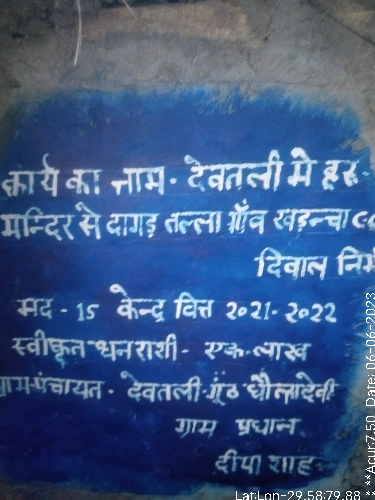 कार्य का नाम - देवतली मे हरु
मन्दिर से दागड़ तल्ला गाँव खड़न्चा एवं
दिवाल निर्मा
मद - 15 केन्द्र वित्त २०२१-२०२२
स्वीकृत धनराशी - एक लाख
ग्राम पंचायत - देवतली गुंठ धौलादेवी
ग्राम प्रधान
दीपा शाह
Lat:Lon-29.58:79.88
**Acur:7.50 Date:06-06-2023